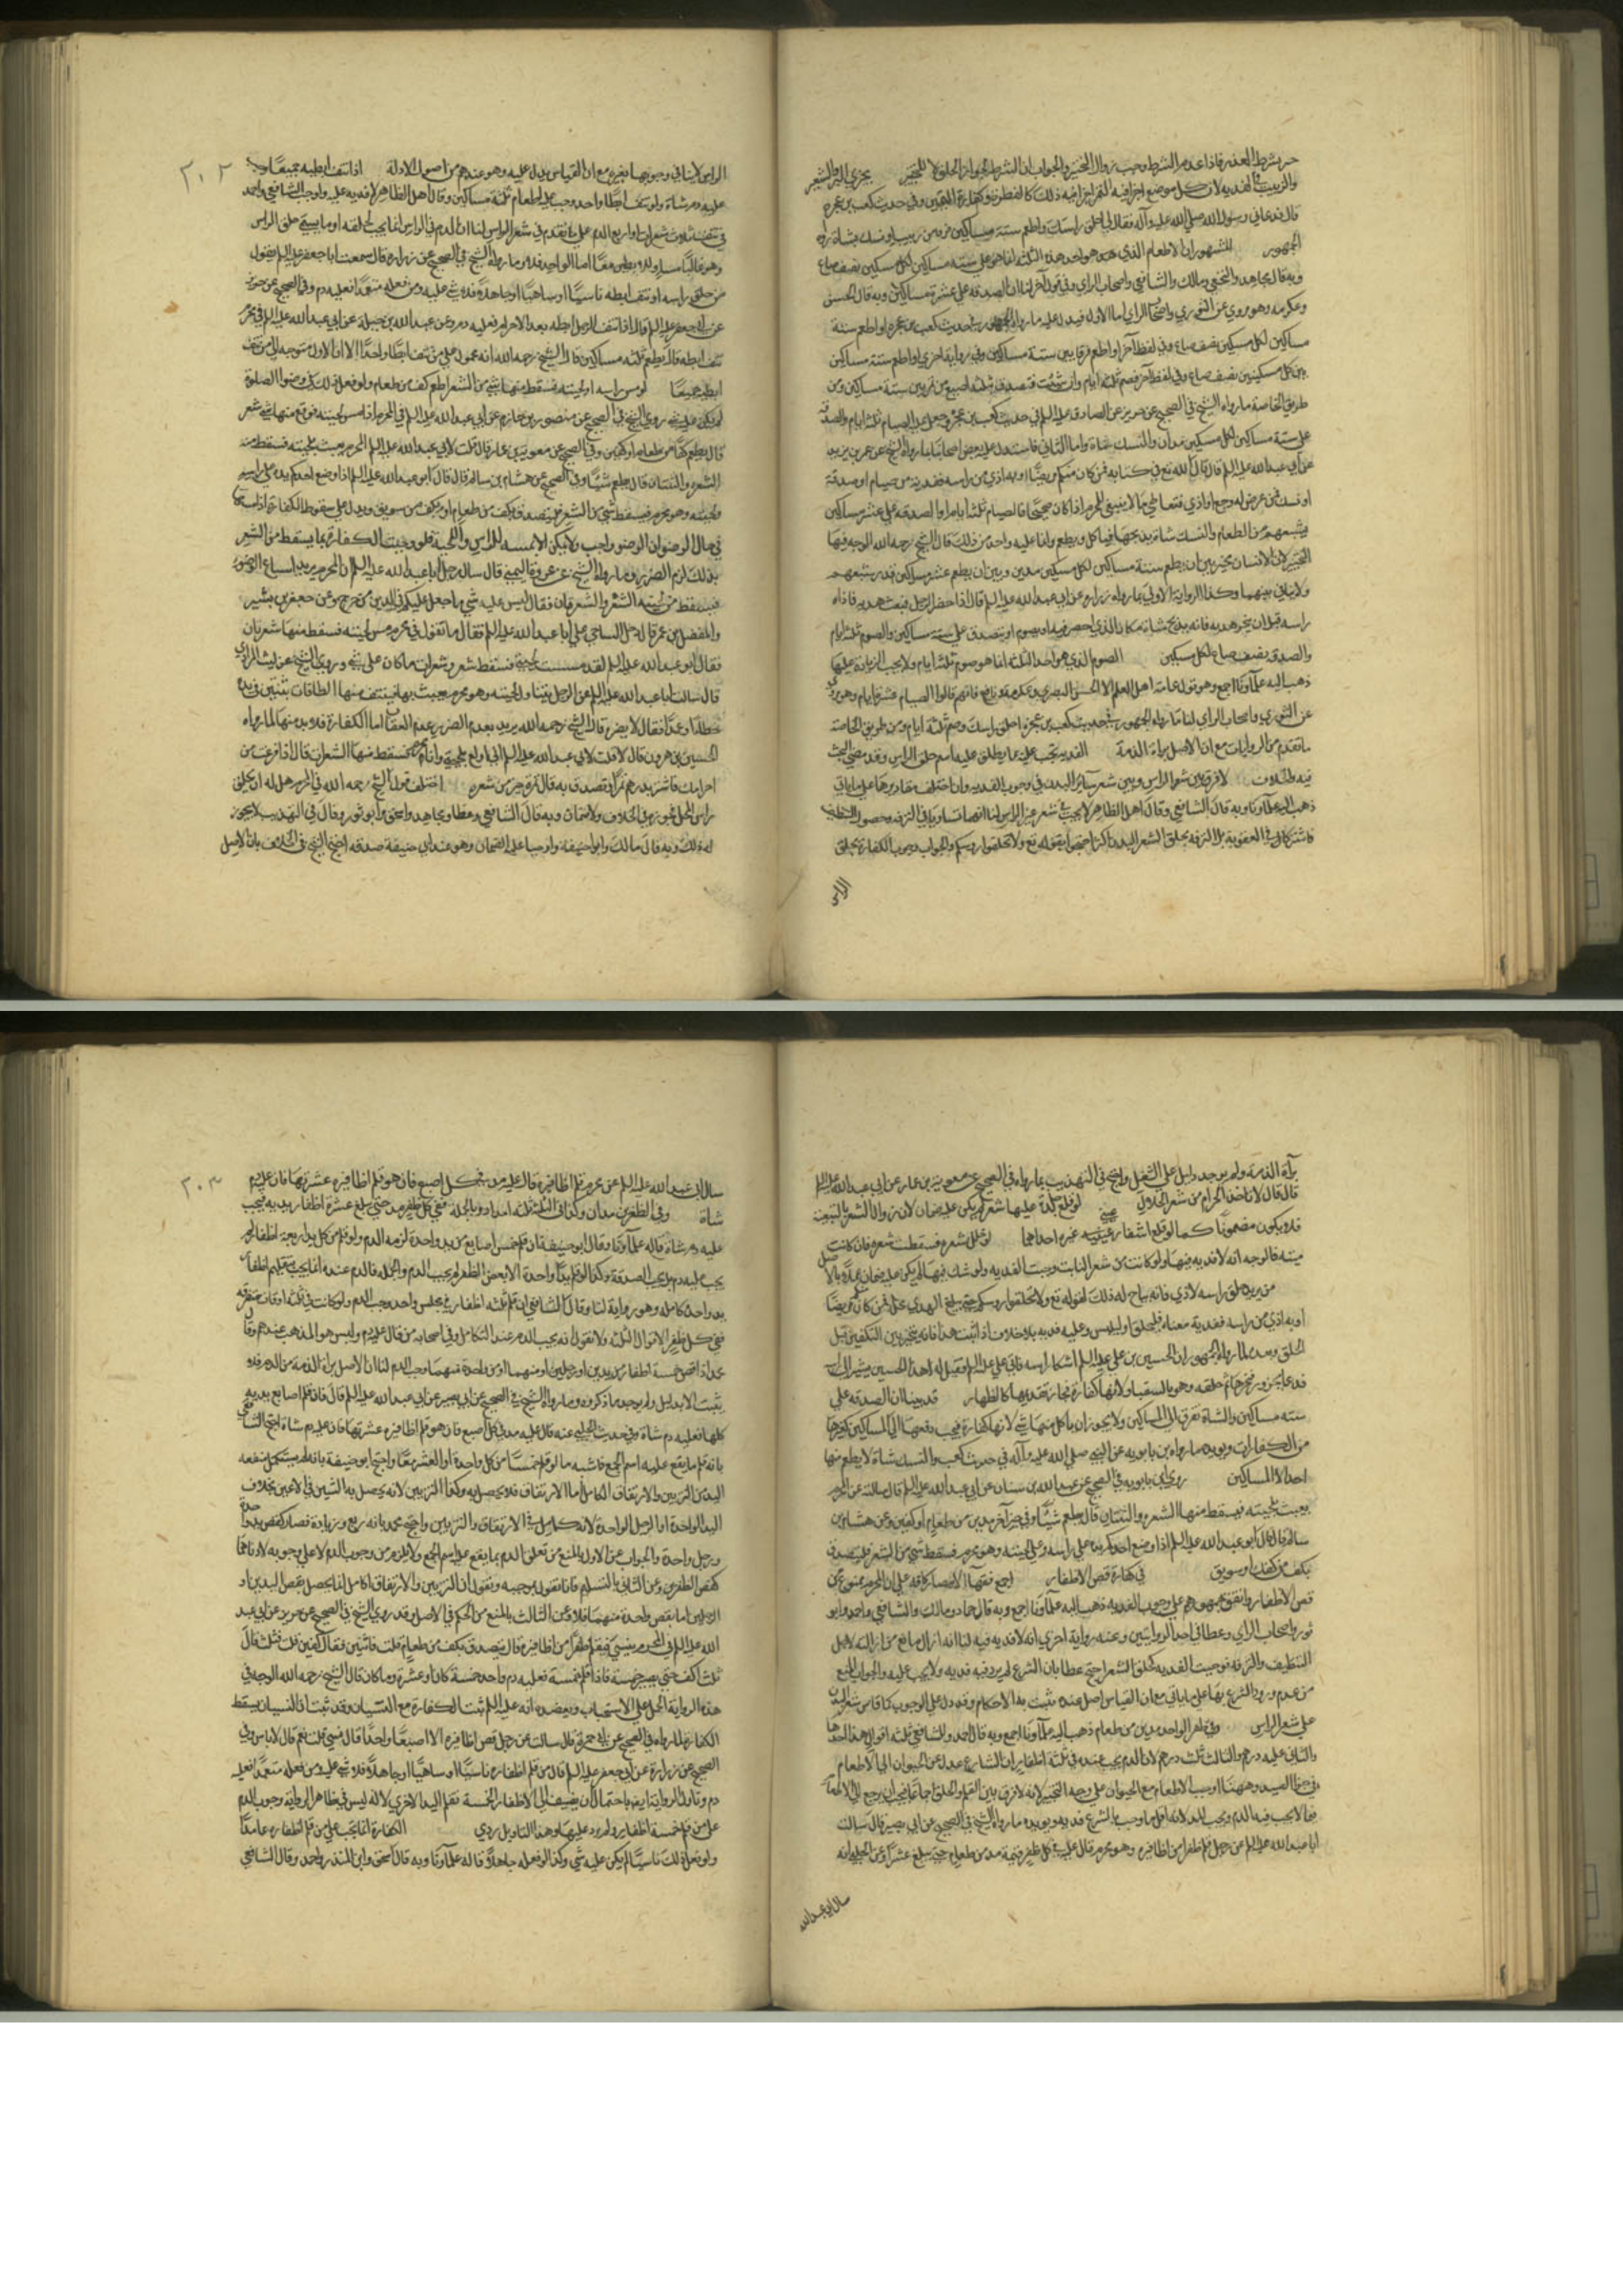 حر بشرط العذر فاذا عدم الشرط وجب زوال التخيير والجواب ان الشرط لجواز الحلق لا للتخيير يجزي البر والشعير
والزبيب في الفدية لان كل موضع اجزا فيه التمر اجزا فيه ذلك كالفطرة وكفارة اليمين وفي حديث كعب بن عجره
قال فدعاني رسول الله صلى الله عليه وآله فقال لي احلق راسك واطعم ستة مساكين فرقا من زبيب او نسك بشاة رواه
الجمهور المشهور ان الاطعام الذي هو احد هذه الثلثه انما هو على ستة مساكين لكل مسكين نصف صاع
وبه قال مجاهد والنخعي ومالك والشافعي واصحاب الراي وفي قول آخر لنا ان الصدقه على عشرة مساكين وبه قال الحسن
وعكرمه وهو مروي عن الثوري واصحاب الراي اما الاول فيدل عليه ما رواه الجمهور في حديث كعب بن عجره او اطعم ستة
مساكين لكل مسكين نصف صاع وفي لفظ آخر او اطعم فرقا بين ستة مساكين وفي رواية اخرى او اطعم ستة مساكين
بين كل مسكينين نصف صاع وفي لفظ آخر فصم ثلثة ايام وان شئت فتصدق بثلثه اصيع من تمر بين ستة مساكين ومن
طريق الخاصة ما رواه الشيخ في الصحيح عن حريز عن الصادق عليه السلم في حديث كعب بن عجره وجعل الصيام ثلثة ايام والصدقة
على ستة مساكين لكل مسكين مدان والنسك شاة واما الثاني فاستدل عليه بعض اصحابنا بما رواه الشيخ عن عمر بن يزيد
عن ابي عبد الله عليه السلم قال قال الله تع في كتابه فمن كان منكم مريضا او به اذى من راسه ففدية من صيام او صدقة
او نسك فمن عرض له وجع او اذى فتعاطى ما لا ينبغي للمحرم اذا كان صحيحا فالصيام ثلثة ايام والصدقه على عشرة مساكين
يشبعهم من الطعام والنسك شاة يذبحها فياكل ويطعم وانما عليه واحد من ذلك قال الشيخ رحمه الله الوجه فيها
التخيير لان الانسان مخير بين ان يطعم ستة مساكين لكل مسكين مدين وبين ان يطعم عشرة مساكين قدر شبعهم
ولا تنافي بينهما وكذا الرواية الاولى ما رواه زرارة عن ابي عبد الله عليه السلم قال اذا احصر الرجل فبعث هديه فاذاه
راسه قبل ان ينحر هديه فانه يذبح شاة مكان الذي احصر فيه او يصوم او يتصدق على ستة مساكين والصوم ثلثة ايام
والصدقة نصف صاع لكل مسكين الصوم الذي هو احد الثلثة انما هو صوم ثلثة ايام ولا يجب الزيادة عليها
ذهب اليه علماؤنا اجمع وهو قول عامة اهل العلم الا الحسن البصري وعكرمة ونافع فانهم قالوا الصيام عشرة ايام وهو مروي
عن الثوري واصحاب الراي لنا ما رواه الجمهور في حديث كعب بن عجره احلق راسك وصم ثلثة ايام ومن طريق الخاصة
ما تقدم من الروايات مع ان الاصل براة الذمة الفدية تجب على ما يطلق عليه اسم حلق الراس وقد مضى البحث
لا فرق بين شعر الراس وبين شعر ساير البدن في وجوب الفدية وان اختلف مقاديرها على ما ياتي
ذهب اليه علماؤنا وبه قال الشافعي وقال اهل الظاهر لا يجب في شعر غير الراس لنا انهما تساويا في الترفه وحصول التنظيف
فاشتركا في العقوبة بل الترفه بحلق الشعر البدن اكثر احتجوا بقوله تع ولا تحلقوا رؤسكم والجواب وجوب الكفارة بحلق
الراس
٢٠٢
الراس لا ينافي وجوبها بغيره مع ان القياس يدل عليه وهو عندهم من اصول الادلة اذا نتف ابطيه جميعا وجب
عليه دم شاة ولو نتف ابطا واحدا وجب عليه اطعام ثلثة مساكين وقال اهل الظاهر لا فدية عليه واوجب الشافعي واحمد
في نتف ثلاث شعرات او اربع الدم على ما تقدم في شعر الراس لنا ان الدم في الراس انما يجب لحلقه او ما يسمى حلق الراس
من حلق راسه او نتف ابطه ناسيا او ساهيا او جاهلا فلا شي عليه ومن فعله متعمدا فعليه دم وفي الصحيح عن حريز
عن ابي جعفر عليه السلم قال اذا نتف الرجل ابطه بعد الاحرام فعليه دم وعن عبد الله بن جبلة عن ابي عبد الله عليه السلم في محرم
نتف ابطه قال يطعم ثلثة مساكين قال الشيخ رحمه الله انه محمول على من نتف ابطا واحدا لان الاول متوجه الى من نتف
ابطيه جميعا لو مس راسه او لحيته فسقط منها شي من الشعر اطعم كفا من طعام ولو فعل ذلك في وضوء الصلوة
لم يكن عليه شي روى الشيخ في الصحيح عن منصور بن حازم عن ابي عبد الله عليه السلم في المحرم اذا مس لحيته فوقع منها شعر
قال يطعم كفا من طعام او كفين وفي الصحيح عن معوية بن عمار قال قلت لابي عبد الله عليه السلم المحرم يعبث بلحيته فسقط منه
الشعرة والثنتان قال يطعم شيئا وفي الصحيح عن هشام بن سالم قال قال ابو عبد الله عليه السلم اذا وضع احدكم يده على راسه
ولحيته وهو محرم فيسقط شي من الشعر فليتصدق بكف من طعام او بكف من سويق ويدل على سقوط الكفارة
في حال الوضوء ان الوضوء واجب ولا يمكن الا بمسه للراس واللحية فلو وجبت الكفارة بما يسقط من الشعر
بذلك لزم الضرر وما رواه الشيخ عن قال ساله رجل ابا عبد الله عليه السلم ان المحرم يريد اسباغ الوضوء
فيسقط من لحيته الشعر والشعرتان فقال ليس عليه شي ما جعل عليكم في الدين من حرج وعن جعفر بن بشير
والمفضل بن عمر قال دخل الساجي على ابا عبد الله عليه السلم فقال ما تقول في محرم مس لحيته فسقط منها شعرتان
فقال ابو عبد الله عليه السلم لقد مسست لحيتي فسقط شعر وشعرات ما كان علي شي وروى الشيخ عن ليث المرادي
قال سالت ابا عبد الله عليه السلم عن الرجل يتناول لحيته وهو محرم يعبث بها فينتف منها الطاقات يبقين في يده
خطاا وعمدا فقال لا يضره قال الشيخ رحمه الله يريد بعدم الضرر عدم العقاب اما الكفارة فلا بد منها لما رواه
الحسن بن هرون قال قلت لابي عبد الله عليه السلم اني اولع بلحيتي وانا محرم فتسقط منها الشعرات قال اذا فرغت من
احرامك فاشتر بدرهم تمرا وتصدق به فان تمرة خير من شعرة اختلف قول الشيخ رحمه الله في المحرم هل له ان يحلق
راس المحل فجوزه في الخلاف ولا ضمان وبه قال الشافعي وعطاء ومجاهد واسحق وابو ثور وقال في التهذيب لا يجوز
له ذلك وبه قال مالك وابو حنيفة واوجبا عليه الضمان وهو عند ابي حنيفة صدقه احتج الشيخ في الخلاف بان الاصل
براة الذمة ولم يوجد دليل على الشغل واحتج في التهذيب بما رواه في الصحيح عن معوية بن عمار عن ابي عبد الله عليه السلم
قال قال لا ياخذ الحرام من شعر الحلال لو قلع جلدة عليها شعر لم يكن عليه ضمان لان زوال الشعر بالتبعية
فلا يكون مضمونا كما لو قلع اشفار عيني غيره احداهما لو خلل شعره فسقطت شعرة فان كانت
ميتة فالوجه انه لا فدية فيها ولو كانت من شعر النابت وجبت الفدية ولو شك فيها لم يكن عليه ضمان عملا بالاصل
من يريد حلق راسه لاذى فانه يباح له ذلك لقوله تع ولا تحلقوا رؤسكم حتى يبلغ الهدي محله فمن كان منكم مريضا
او به اذى من راسه ففدية معناه فليحلق او ليلبس وعليه فدية بلا خلاف اذا ثبت هذا فانه يتخير بين التكفير قبل
الحلق وبعده لما رواه الجمهور ان الحسين بن علي عليه السلم اشتكا راسه فاتى علي عليه السلم فقيل له هذا الحسين يشير الى راسه
فدعا بجزور فنحرها ثم حلقه وهو بالسقيا ولانها كفارة فجاز تقديمها كالظهار قد بينا ان الصدقه على
ستة مساكين والشاة تفرق الى المساكين ولا يجوز ان ياكل منها شي لانها كفارة فيجب دفعها الى المساكين كغيرها
من الكفارات ويؤيده ما رواه بن بابويه عن النبي صلى الله عليه وآله في حديث كعب والنسك شاة لا يطعم منها
احد الا المساكين روى ابن بابويه في الصحيح عن عبد الله بن سنان عن ابي عبد الله عليه السلم قال سالته عن المحرم
يعبث بلحيته فيسقط منها الشعرة والثنتان قال يطعم شيئا وفي خبر آخر مدين من طعام او كفين وعن هشام بن
سالم قال قال ابو عبد الله عليه السلم اذا وضع احدكم يده على راسه وعلى لحيته وهو محرم فسقط شي من الشعر فليتصدق
بكف من كعك او سويق في كفارة قص الاظفار اجمع فقهاء الامصار كافه على ان المحرم ممنوع من
قص الاظفار واتفق جمهورهم على وجوب الفدية ذهب اليه علماؤنا اجمع وبه قال حماد ومالك والشافعي واحمد وابو
ثور واصحاب الراي وعطا في احد الروايتين وعنه رواية اخرى انه لا فدية فيه لنا انه ازال ما منع من ازالته لاجل
التنظيف والترفه فوجبت الفدية كحلق الشعر احتج عطا بان الشرع لم يرد فيه فدية ولا يجب عليه والجواب المنع
من عدم ورود الشرع بها على ما ياتي مع ان القياس اصل عنده تثبت به الاحكام وقد دل على الوجوب كما قاس شعر البدن
على شعر الراس وفي الظفر الواحد مد من طعام ذهب اليه علماؤنا اجمع وبه قال احمد وللشافعي ثلثة اقوال هذا احدها
والثاني عليه درهم والثالث ثلث درهم لان الدم يجب عنده في ثلثة اظفار لنا ان الشارع عدل عن الحيوان الى الاطعام
في جزاء الصيد وههنا اوجب الاطعام مع الحيوان على وجه التخيير
فيما لا يجب فيه الدم ويجب المد لانه اقل ما وجب بالشرع فدية ويؤيده ما رواه الشيخ في الصحيح عن ابي بصير قال سالت
ابا عبد الله عليه السلم عن رجل قلم ظفرا من اظافيره وهو محرم قال عليه في كل ظفر قيمة مد من طعام حتى يبلغ عشرة وعن الحلبي انه
سال ابا عبد الله
٢٠٣
سال ابا عبد الله عليه السلم عن محرم قلم اظافيره قال عليه مد في كل اصبع فان هو قلم اظافيره عشرتها فان عليه دم
شاة وفي الظفرين مدان وكذا في الثلثة ثلثة امداد وبالجملة ففي كل ظفر مد حتى يبلغ عشرة اظفار يديه فيجب
عليه دم شاة قاله علماؤنا وقال ابو حنيفة ان قلم خمس اصابع من يد واحدة لزمه الدم ولو قلم من كل يد اربعة اظفار لم
يجب عليه دم بل يجب الصدقة
يد واحدة كاملة وهو رواية لنا وقال الشافعي ان قلم ثلثة اظفار في مجلس واحد وجب الدم ولو كانت في ثلثة اوقات متفرقة
ففي كل ظفر الاقوال الثلثة ولا نقول انه يجب الدم عند التكامل وفي اصحابه من قال عليه دم وليس هو المذهب عندهم وقال
محمد اذا قص خمسة اظفار من يدين او رجلين او منهما او من واحدة منهما وجب الدم لنا ان الاصل براة الذمة من الدم فلا
يثبت الا بدليل ولم يوجد ما ذكروه وما رواه الشيخ في الصحيح عن ابي بصير عن ابي عبد الله عليه السلم قال فان قلم اصابع يديه
كلها فعليه دم شاة وفي حديث الحلبي عنه قال عليه مد في كل اصبع فان هو قلم اظافيره عشرتها فان عليه دم شاة احتج الشافعي
بانه قلم ما يقع عليه اسم الجمع فاشبه ما لو قلم خمسا من كل واحدة او العشر معا واحتج ابو حنيفة بانه لم يستكمل منفعة
اليد من التزيين والارتفاق الكامل
اليد الواحدة او الرجل الواحدة لانه كامل في الارتفاق والتزيين واحتج محمد بانه ربع وزيادة فصار كقص يد واحدة
ورجل واحدة والجواب عن الاول بالمنع من تعلق الدم بما يقع عليه اسم الجمع
كقص الظفرين وعن الثاني بالتسليم فانا نقول بموجبه ونقول ان التزيين والارتفاق الكامل انما يحصل بقص اليدين او
الرجلين اما بقص واحدة منهما فلا وعن الثالث بالمنع من الحكم في الاصل وقد روى الشيخ في الصحيح عن حريز عن ابي عبد
الله عليه السلم في المحرم ينسى فيقلم ظفرا من اظافيره قال يتصدق بكف من طعام قلت فاثنين فقال كفين قلت فثلثة قال
ثلث اكف حتى يصير خمسة فاذا قلم خمسة فعليه دم واحد خمسة كان او عشرة او ما كان قال الشيخ رحمه الله الوجه في
هذه الرواية الحمل على الاستحباب ويعضده انه عليه السلم ثبت الكفارة مع النسيان وقد ثبت ان النسيان يسقط
الكفارة لما رواه في الصحيح عن ابي حمزة قال سالت عن رجل قص اظافيره الا اصبعا واحدا قال نسي قلت نعم قال لا باس وفي
الصحيح عن زرارة عن ابي جعفر عليه السلم قال من قلم اظفاره ناسيا او ساهيا او جاهلا فلا شي عليه ومن فعله متعمدا فعليه
دم
على من قلم خمسة اظفار الكفارة انما تجب على من قلم اظفاره عامدا
ولو فعل ذلك ناسيا لم يكن عليه شي وكذا لو فعله جاهلا قاله علماؤنا وبه قال اسحق وابن المنذر واحمد وقال الشافعي